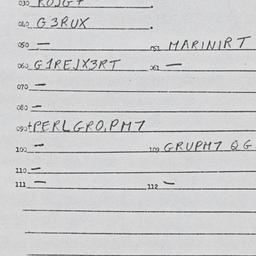 030 ROJG+ .
040 G3RUX .
050 — 052 MARINIRT
060 G1REJX3RT 062 —
070 —
080 —
090 +PERLGRO.PM7
100 — 109 GRUPM7 QG
110 —
111 — 112 —